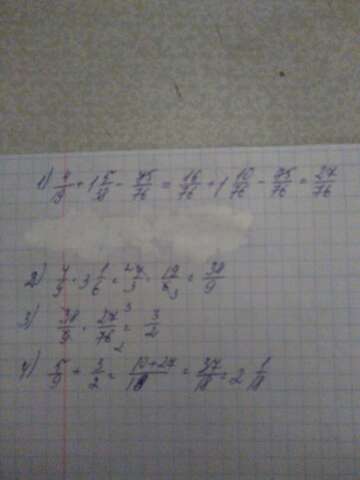 1) 4/9 + 1 5/8 - 75/76 = 16/76 + 1 10/76 - 75/76 = 27/76
2) 4/3 · 3 1/6 = 4/3 · 19/6 3 = 38/9
3) 38/9 · 27/76 3 2 = 3/2
4) 5/9 + 3/2 = 10+27/18 = 37/18 = 2 1/18